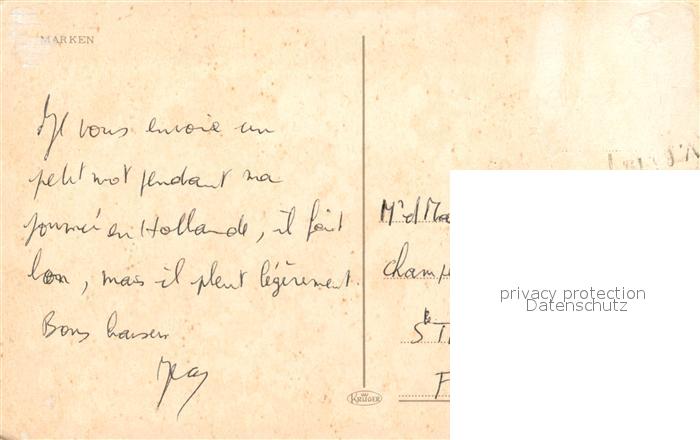 MARKEN
Je vous envoie un
petit mot pendant ma
journée en Hollande, il fait
bon, mais il pleut légèrement.
Bons baisers
Mr et Ma
champ
Ste T
F
KRÜGER
privacy protection
Datenschutz